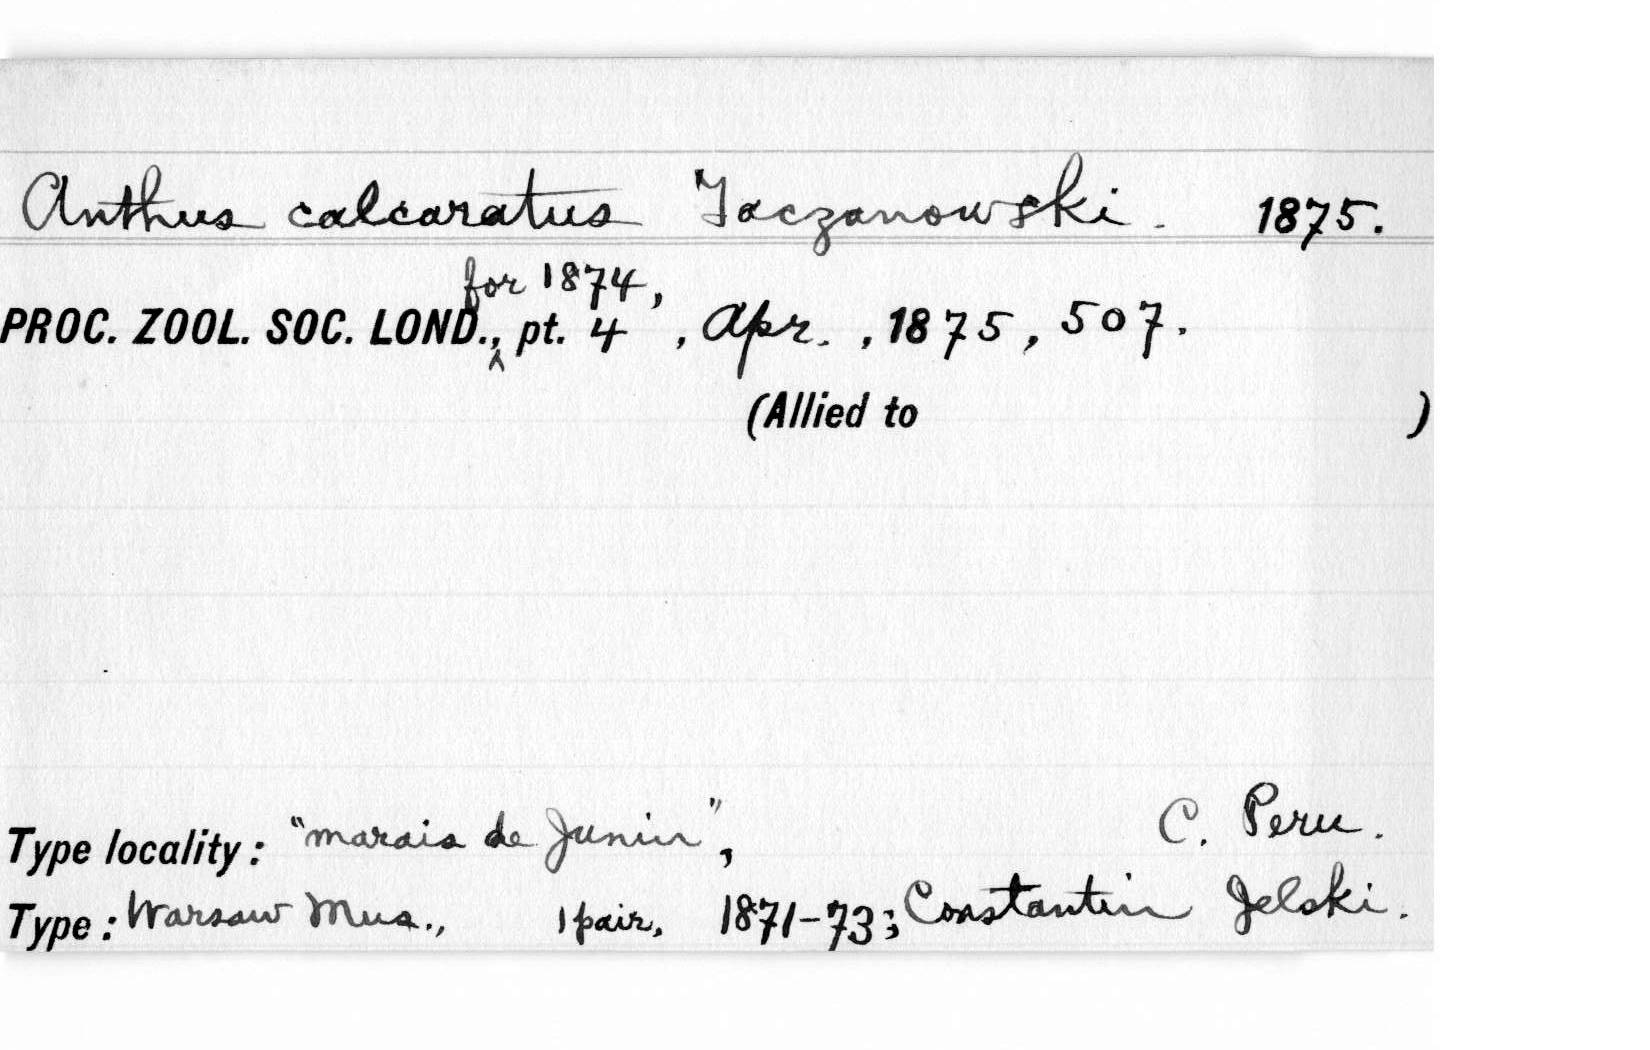 Anthus calcaratus Taczanowski. 1875.
for 1874,
PROC. ZOOL. SOC. LOND., pt. 4, Apr., 1875, 507.
(Allied to )
Type locality: "marais de Junin", C. Peru.
Type: Warsaw Mus., 1 pair, 1871-73; Constantin Jelski.